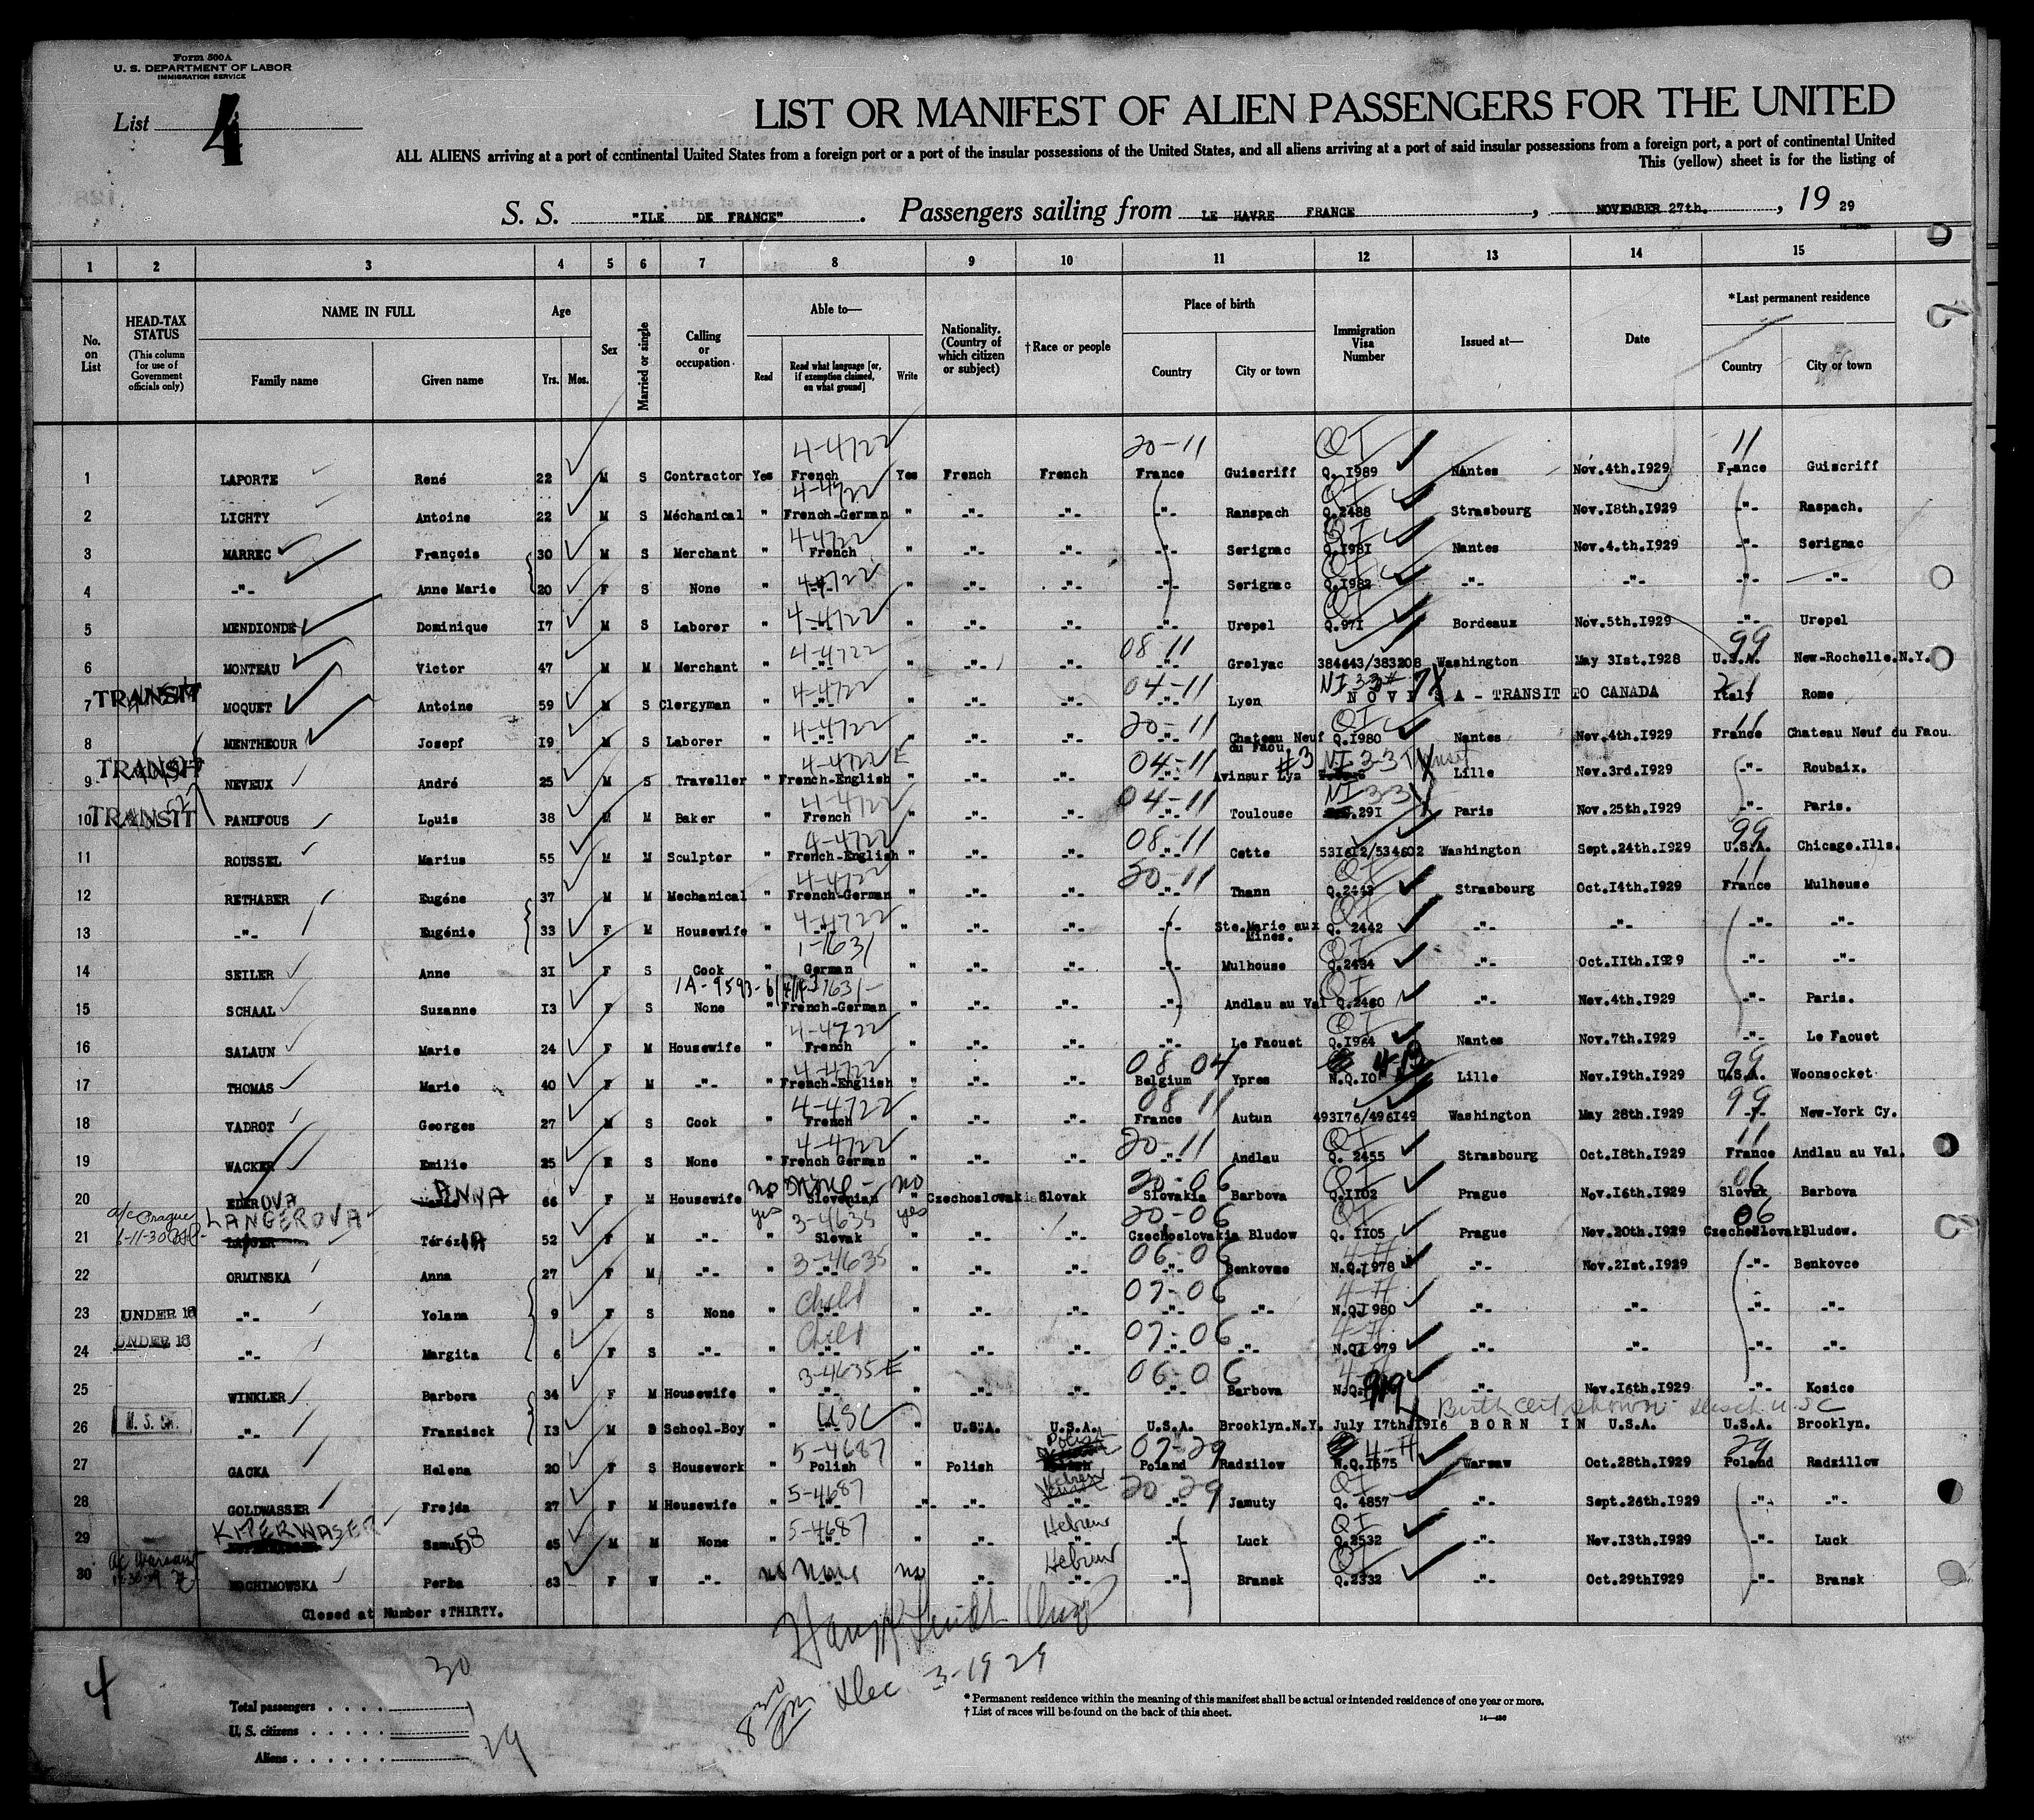 Form 500A
U. S. DEPARTMENT OF LABOR
IMMIGRATION SERVICE
List 4
LIST OR MANIFEST OF ALIEN PASSENGERS FOR THE UNITED
ALL ALIENS arriving at a port of continental United States from a foreign port or a port of the insular possessions of the United States, and all aliens arriving at a port of said insular possessions from a foreign port, a port of continental United
This (yellow) sheet is for the listing of
S. S. "ILE DE FRANCE" . Passengers sailing from LE HAVRE FRANCE , NOVEMBER 27th. , 19 29
1 2 3 4 5 6 7 8 9 10 11 12 13 14 15
No. on List
HEAD-TAX STATUS (This column for use of Government officials only)
NAME IN FULL Family name Given name
Age Yrs. Mos.
Sex
Married or single
Calling or occupation
Able to— Read Read what language [or, if exemption claimed, on what ground] Write
Nationality. (Country of which citizen or subject)
†Race or people
Place of birth Country City or town
Immigration Visa Number
Issued at—
Date
*Last permanent residence Country City or town
4-4722 20-11 QI 11
1 LAPORTE René 22 M S Contractor Yes French Yes French French France Guiscriff Q. I989 Nantes Nov.4th.I929 France Guiscriff
4-4722 QI
2 LICHTY Antoine 22 M S Méchanical " French-German " -"- -"- -"- Ranspach Q.2488 Strasbourg Nov.I8th.I929 -"- Raspach.
4-4722 QI
3 MARREC François 30 M S Merchant " French " -"- -"- -"- Serignac Q.I98I Nantes Nov.4.th.I929 -"- Serignac
4-4722 QI
4 -"- Anne Marie 20 F S None " -"- " -"- -"- -"- Serignac Q.I982 -"- -"- -"- -"-
4-4722 QI
5 MENDIONDE Dominique I7 M S Laborer " -"- " -"- -"- -"- Urepel Q.97I Bordeaux Nov.5th.I929 -"- Urepel
4-4722 08-11 99
6 MONTEAU Victor 47 M M Merchant " -"- " -"- -"- -"- Grelyac 384643/383208 Washington May 3Ist.I928 U.S.A. New-Rochelle.N.Y.
TRANSIT 4-4722 04-11 NI 33
7 MOQUET Antoine 59 M S Clergyman " -"- " -"- -"- -"- Lyon N O V I S A - TRANSIT TO CANADA Italy Rome
4-4722 20-11 QI 11
8 MENTHEOUR Josepf I9 M S Laborer " -"- " -"- -"- -"- Chateau Neuf du Faou Q.I980 Nantes Nov.4th.I929 France Chateau Neuf du Faou.
TRANSIT 4-4722 E 04-11 #3 NI 3-3
9 NEVEUX André 25 M S Traveller " French-English " -"- -"- -"- Avinsur Lys Lille Nov.3rd.I929 -"- Roubaix.
TRANSIT 4-4722 04-11 NI 33
10 PANIFOUS Louis 38 M M Baker " French " -"- -"- -"- Toulouse 29I Paris Nov.25th.I929 -"- Paris.
4-4722 08-11 99
11 ROUSSEL Marius 55 M M Sculpter " French-English " -"- -"- -"- Cette 53I6I2/534602 Washington Sept.24th.I929 U.S.A. Chicago.Ills.
4-4722 20-11 QI 11
12 RETHABER Eugéne 37 M M Mechanical " French-German " -"- -"- -"- Thann Q.2443 Strasbourg Oct.I4th.I929 France Mulhouse
4-4722 QI
13 -"- Eugénie 33 F M Housewife " -"- " -"- -"- -"- Ste.Marie aux Mines. Q. 2442 -"- -"- -"- -"-
1-1631 QI
14 SEILER Anne 3I F S Cook " German " -"- -"- -"- Mulhouse Q.2434 -"- Oct.IIth.I929 -"- -"-
1A-9593- 1631- QI
15 SCHAAL Suzanne I3 F S None " French-German " -"- -"- -"- Andlau au Val Q.2460 -"- Nov.4th.I929 -"- Paris.
4-4722 QI
16 SALAUN Marie 24 F M Housewife " French " -"- -"- -"- Le Faouet Q.I964 Nantes Nov.7th.I929 -"- Le Faouet
4-4722 08 04 99
17 THOMAS Marie 40 F M -"- " French-English " -"- -"- Belgium Ypres N.Q.IO Lille Nov.I9th.I929 U.S.A. Woonsocket
4-4722 08 11 99
18 VADROT Georges 27 M S Cook " French " -"- -"- France Autun 493I76/496I49 Washington May 28th.I929 -"- New-York Cy.
4-4722 20-11 QI 11
19 WACKER Emilie 25 F S None " French German " -"- -"- -"- Andlau Q. 2455 Strasbourg Oct.I8th.I929 France Andlau au Val.
no none - no 20-06 QI 06
20 EDEROVA ANNA 66 F M Housewife " Slovenian " Czechoslovakia Slovak Slovakia Barbova Q.II02 Prague Nov.I6th.I929 Slovak Barbova
a/c Prague LANGEROVA yes 3-4635 yes 20-06 QI 06
21 LANGER TéréziA 52 F M -"- " Slovak " -"- -"- Czechoslovakia Bludow Q. II05 Prague Nov.20th.I929 Czechoslovak Bludow.
3-4635 06-06 4-H
22 ORMINSKA Anna 27 F M -"- " -"- " -"- -"- -"- Benkovse N.Q.I978 -"- Nov.2Ist.I929 -"- Benkovce
Child 07-06 4-H
23 UNDER 16 -"- Yolana 9 F S None " -"- " -"- -"- -"- -"- N.Q.I980 -"- -"- -"- -"-
Child 07-06 4-H
24 UNDER 16 -"- Margita 6 F S -"- " -"- " -"- -"- -"- -"- N.QI 979 -"- -"- -"- -"-
3-4635 E 06-06 4-H
25 WINKLER Barbora 34 F M Housewife " -"- " -"- -"- -"- Barbova N.Q. 919 -"- Nov.I6th.I929 -"- Kosice
USC Birth Cert shown
26 -"- Fransisck I3 M S School-Boy " -"- " U.S.A. U.S.A. U.S.A. Brooklyn.N.Y. July I7th.I9I6 B O R N I N U.S.A. U.S.A. Brooklyn.
5-4687 Polish 07-29 4-H 29
27 GACKA Helena 20 F S Housework " Polish " Polish Poland Radzilow N.Q.I575 Warsaw Oct.28th.I929 Poland Radzillow
5-4687 Hebrew 20 29 QI
28 GOLDWASSER Frejda 27 F M Housewife " -"- " -"- -"- -"- Jamuty Q. 4857 -"- Sept.26th.I929 -"- -"-
KIPERWASER 5-4687 Hebrew QI
29 Samu 58 65 M M None " -"- " -"- -"- -"- Luck Q.2532 -"- Nov.I3th.I929 -"- Luck
a/c Warsaw no none no Hebrew QI
30 MOCHIMOWSKA Perha 63 F W -"- -"- -"- -"- -"- Bransk Q.2332 -"- Oct.29thI929 -"- Bransk
Closed at Number :THIRTY.
Dec 3-1929
8 30
4
Total passengers . . . . 30
U. S. citizens . . . . . 1
Aliens . . . . . . 29
* Permanent residence within the meaning of this manifest shall be actual or intended residence of one year or more.
† List of races will be found on the back of this sheet.